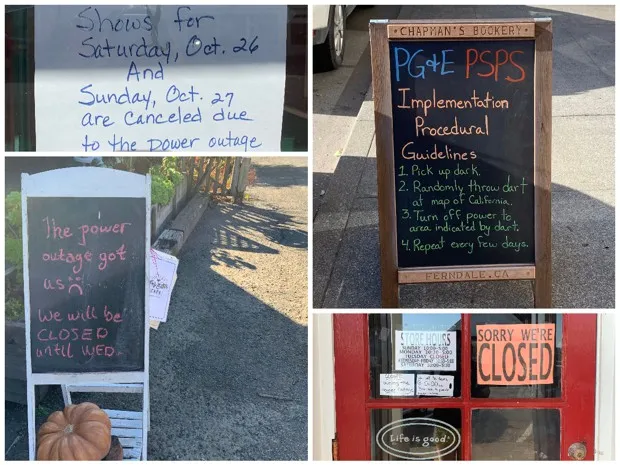 Shows for
Saturday, Oct. 26
And
Sunday, Oct. 27
are canceled due
to the power outage
CHAPMAN'S BOOKERY
PG&E PSPS
Implementation
Procedural
Guidelines
1. Pick up dark.
2. Randomly throw dart
at map of California.
3. Turn off power to
area indicated by dart.
4. Repeat every few days.
FERNDALE, CA
The power
outage got
us
We will be
CLOSED
until WED.
STORE HOURS
SORRY WE'RE
CLOSED
Life is good